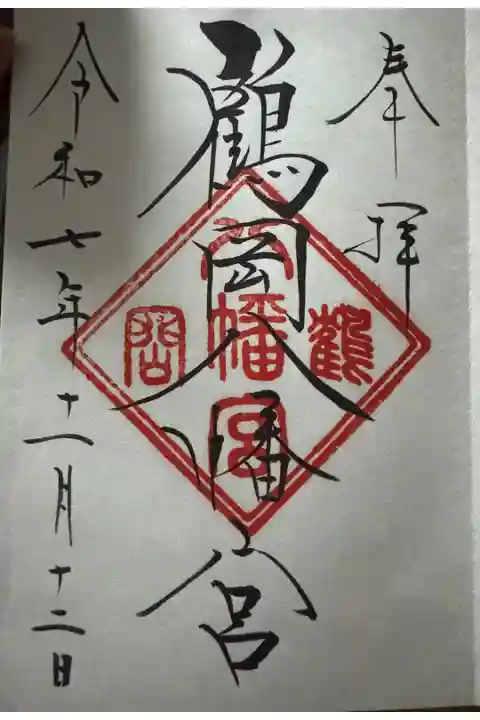 奉拝
鶴岡八幡宮
鶴
八幡宮
岡
令和七年十一月十二日